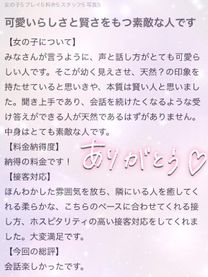 女の子5 プレイ5 料金5 スタッフ5 写真5
可愛いらしさと賢さをもつ素敵な人です
【女の子について】
みなさんが言うように、声と話し方がとても可愛ら
しい人です。そこが幼く見えさせ、天然？の印象を
持たせていると思いきや、本質は賢い人と思いまし
た。聞き手であり、会話を続けたくなるような受
け答えができる人が天然であるはずがありません。
中身はとても素敵な人です。
【料金納得度】
納得の料金です！
ありがとう♡
【接客対応】
ほんわかした雰囲気を放ち、隣にいる人を癒してく
れる柔らかな、こちらのペースに合わせてくれる接
し方、ホスピタリティの高い接客対応をしてくれま
した。大変満足です。
【今回の総評】
会話楽しかったです。